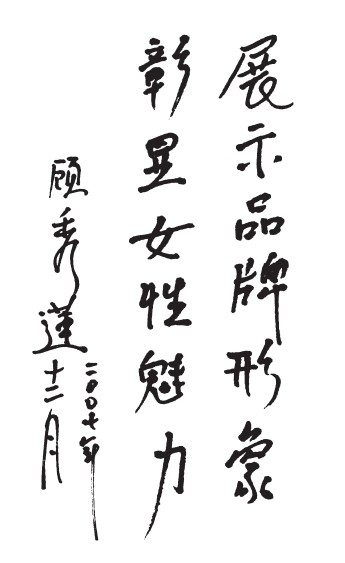 展示品牌形象
彰显女性魅力
顾秀莲
二〇〇七年
十二月